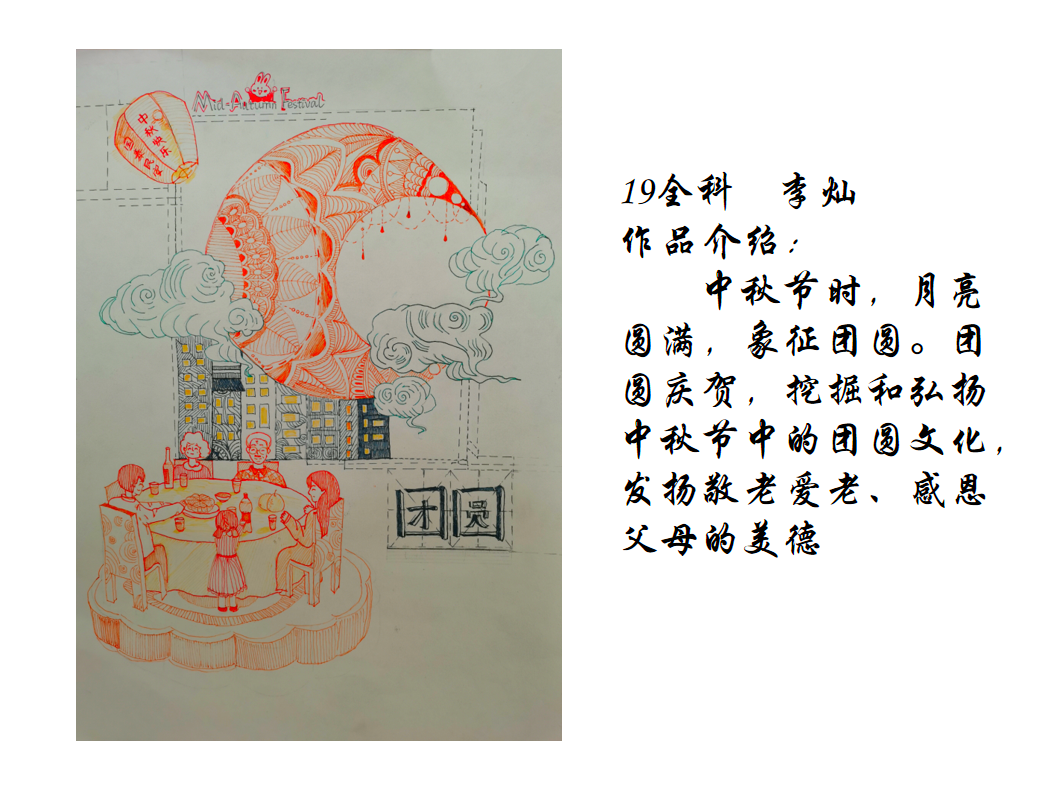 Mid-Autumn Festival
中秋快乐
国泰民安
团圆
19全科 李灿
作品介绍：
中秋节时，月亮
圆满，象征团圆。团
圆庆贺，挖掘和弘扬
中秋节中的团圆文化，
发扬敬老爱老、感恩
父母的美德